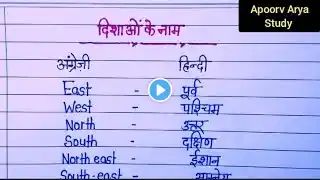 Apoorv Arya
Study
दिशाओं के नाम
अंग्रेज़ी हिन्दी
East - पूर्व
West - पश्चिम
North - उत्तर
South - दक्षिण
North east - ईशान
South-east - आग्नेय